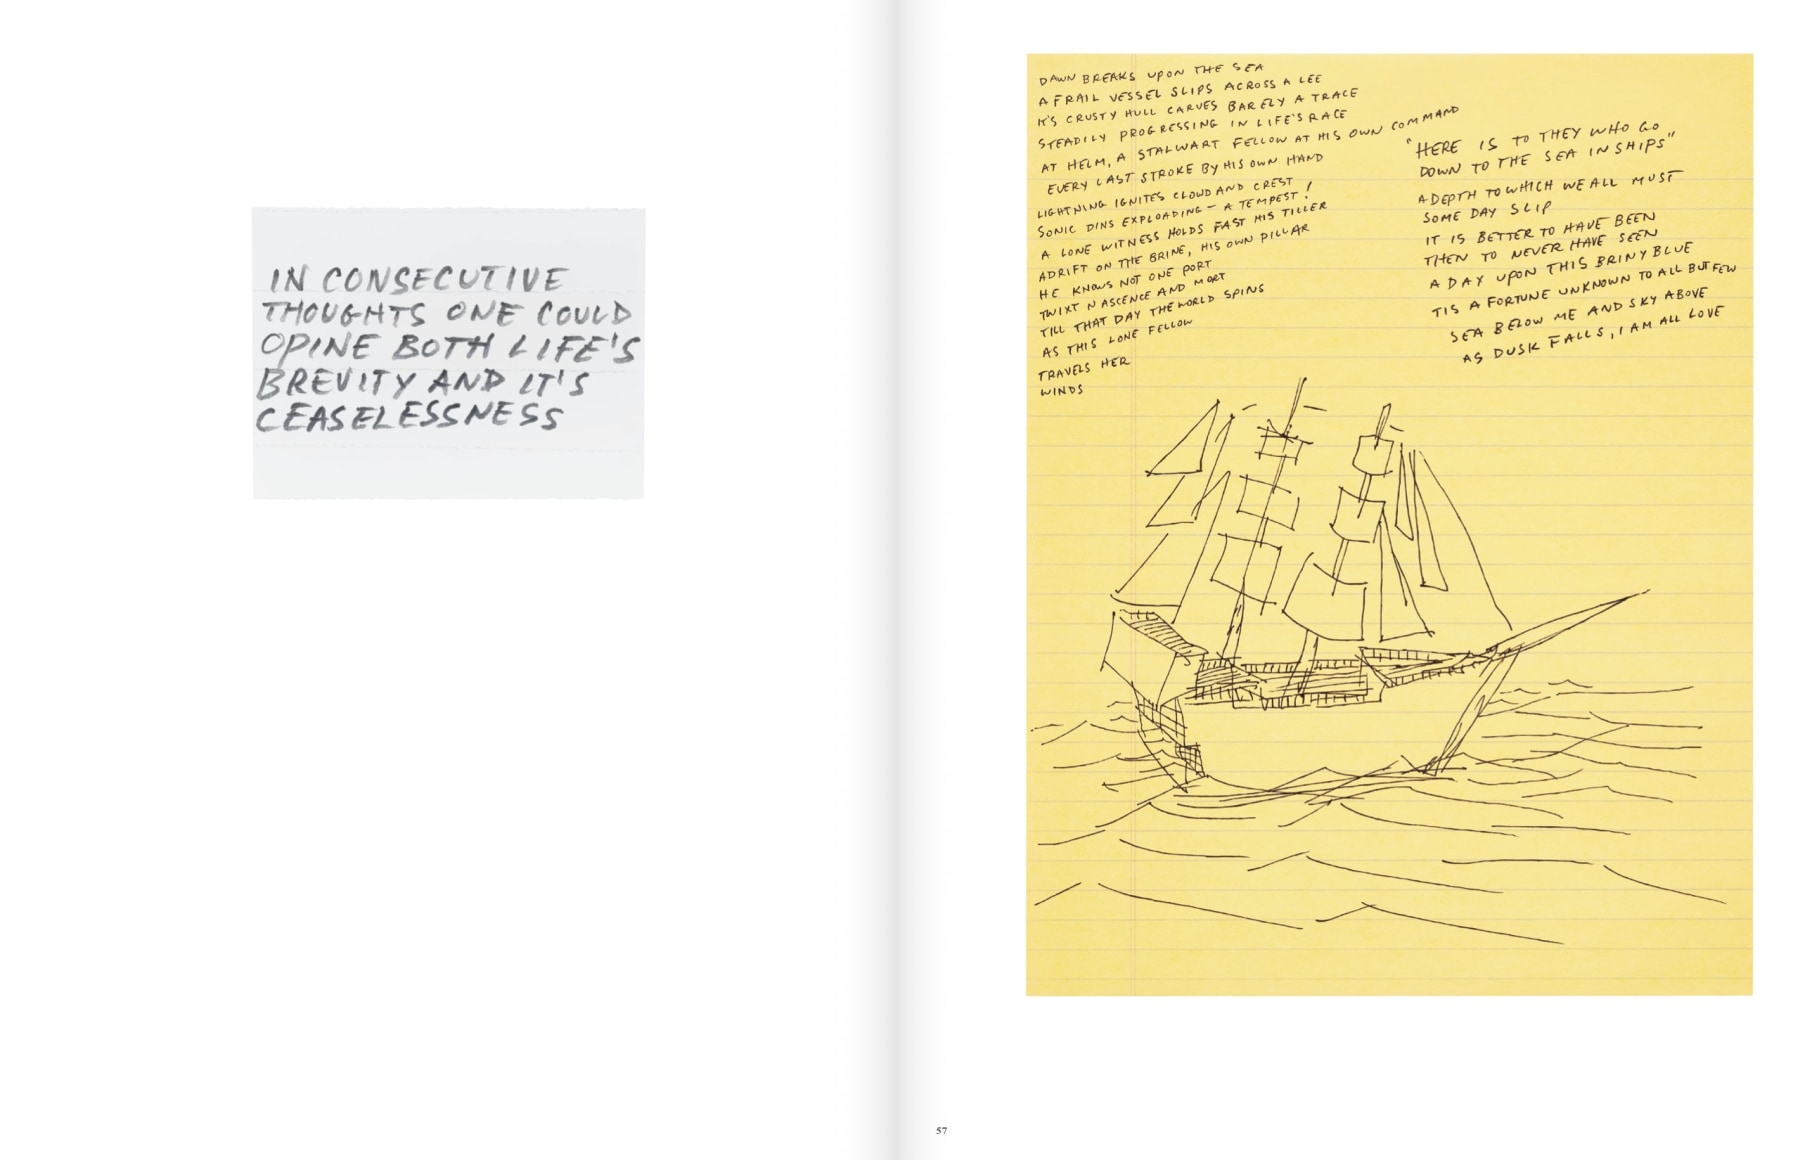 IN CONSECUTIVE
THOUGHTS ONE COULD
OPINE BOTH LIFE'S
BREVITY AND IT'S
CEASELESSNESS
DAWN BREAKS UPON THE SEA
A FRAIL VESSEL SLIPS ACROSS A LEE
IT'S CRUSTY HULL CARVES BARELY A TRACE
STEADILY PROGRESSING IN LIFE'S RACE
AT HELM, A STALWART FELLOW AT HIS OWN COMMAND
EVERY LAST STROKE BY HIS OWN HAND
LIGHTNING IGNITES CLOUD AND CREST
SONIC DINS EXPLOADING - A TEMPEST!
A LONE WITNESS HOLDS FAST HIS TILLER
ADRIFT ON THE BRINE, HIS OWN PILLAR
HE KNOWS NOT ONE PORT
TWIXT NASCENCE AND MORT
TILL THAT DAY THE WORLD SPINS
AS THIS LONE FELLOW
TRAVELS HER
WINDS
"HERE IS TO THEY WHO GO
DOWN TO THE SEA IN SHIPS"
A DEPTH TO WHICH WE ALL MUST
SOME DAY SLIP
IT IS BETTER TO HAVE BEEN
THEN TO NEVER HAVE SEEN
A DAY UPON THIS BRINY BLUE
TIS A FORTUNE UNKNOWN TO ALL BUT FEW
SEA BELOW ME AND SKY ABOVE
AS DUSK FALLS, I AM ALL LOVE
57